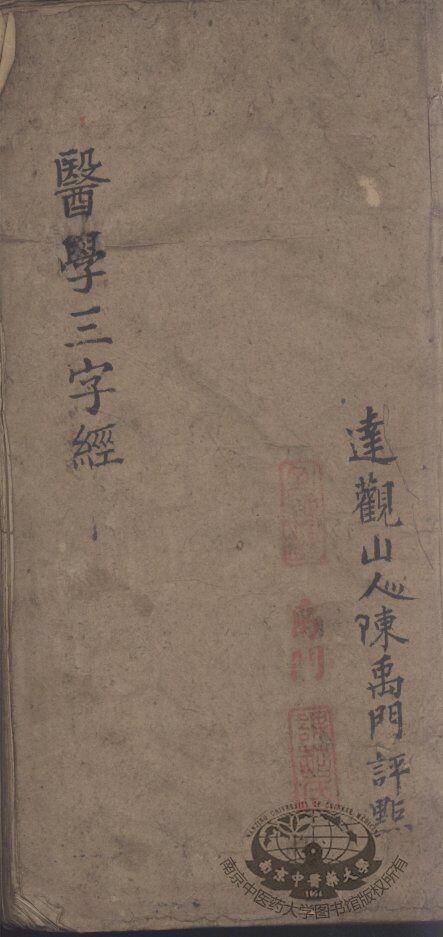 達觀山人陳禹門評點
禹門
醫學三字經
NANJING UNIVERSITY OF CHINESE MEDICINE
南京中醫藥大學
1954
南京中医药大学图书馆版权所有